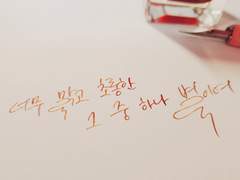 너무 맑고 초롱한
그 중 하나 별이여